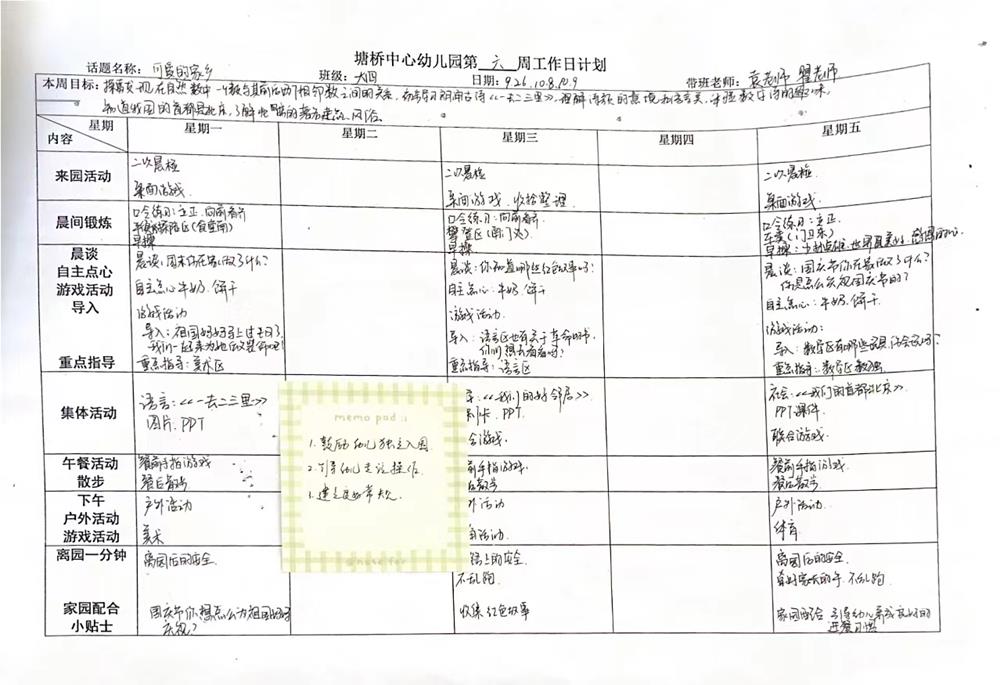 塘桥中心幼儿园第 六 周工作日计划
话题名称: 可爱的家乡 班级: 大四 日期: 9.26.10.8.10.9 带班老师: 袁老师 翟老师
本周目标: 探索发现在自然数中一个数与其前后相邻数之间的关系 学习古诗《一去二三里》,理解诗歌的意境和含义,体验数字诗的趣味.
知道我国的首都是北京,了解北京的著名建筑、风俗.
星期 内容 星期一 星期二 星期三 星期四 星期五
来园活动
二次晨检
桌面游戏.
二次晨检
桌面游戏. 收拾整理.
二次晨检.
桌面游戏.
晨间锻炼
口令练习: 立正. 向前看齐
早操
口令练习: 向前看齐
攀登区(南门旁)
早操
口令练习: 立正.
早操:
晨谈
自主点心
游戏活动
导入
重点指导
晨谈: 周末你在家做了什么?
自主点心: 牛奶. 饼干
游戏活动
导入: 祖国妈妈马上过生日了
我们一起来为她做点事吧!
重点指导: 美术区
晨谈: 你知道哪些红色故事吗?
自主点心: 牛奶. 饼干
游戏活动.
导入: 语言区也有关于革命的书,
你们想去看看吗?
重点指导: 语言区
晨谈: 国庆节你在家做了什么?
你是怎么庆祝国庆节的?
自主点心: 牛奶. 饼干
游戏活动:
导入: 数学区有哪些玩具,你会玩吗?
重点指导: 数学区
集体活动
语言:《一去二三里》
图片. PPT
《我们的好邻居》
卡. PPT.
游戏.
社会:《我们的首都北京》
PPT课件.
联合游戏.
午餐活动
散步
餐前手指游戏
餐后散步
前手指游戏.
后散步
餐前手指游戏.
餐后散步
下午
户外活动
游戏活动
户外活动
美术
外活动
活动.
户外活动.
体育.
离园一分钟
离园后的安全.
路上的安全.
不乱跑.
离园后的安全.
牵好家长的手. 不乱跑
家园配合
小贴士
国庆节你想怎么为祖国妈妈
庆祝?
收集红色故事
家园配合 引导幼儿养成良好的
进餐习惯
memo pad :)
1. 鼓励幼儿独立入园.
2. 引导幼儿主动操作.
1. 建立良好常规.